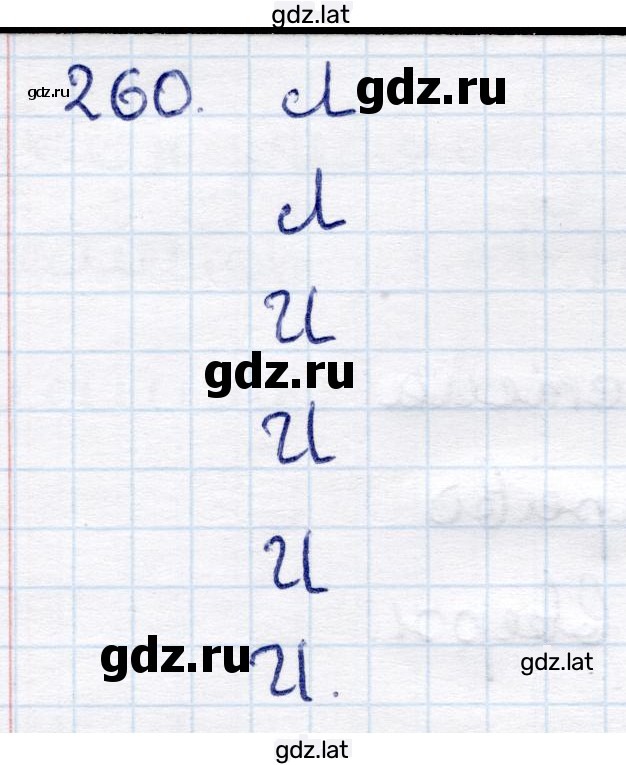 gdz.lat
gdz.ru 260. Л gdz.ru
Л
И
gdz.ru
И
И
gdz.ru И. gdz.lat
gdz.lat